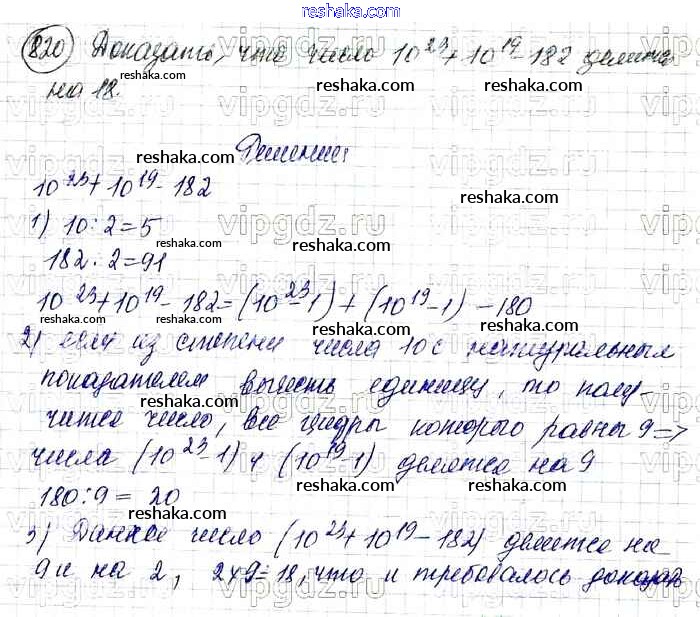 reshaka.com
820 Доказать, что число 10²³ + 10¹⁹ - 182 делится
на 18.
Решение:
10²³ + 10¹⁹ - 182
1) 10 : 2 = 5
182 : 2 = 91
10²³ + 10¹⁹ - 182 = (10²³ - 1) + (10¹⁹ - 1) - 180
2) если из степени числа 10 с натуральным
показателем вычесть единицу, то полу-
чится число, все цифры которого равны 9 =>
числа (10²³ - 1) и (10¹⁹ - 1) делятся на 9
180 : 9 = 20
3) Данное число (10²³ + 10¹⁹ - 182) делится на
9 и на 2, 2 × 9 = 18, что и требовалось доказать